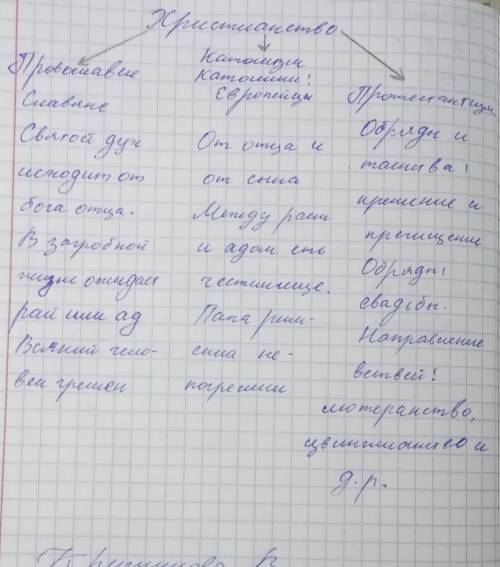 Христианство
Православие
Славяне
Святой дух
исходит от
бога отца.
В загробной
жизни ожидает
рай или ад
Всякий чело-
век грешен
Католизм
Католики!
Европейцы
От отца и
от сына
Между раем
и адом есть
чистилище.
Папа рим-
ский не-
погрешим
Протестантизм.
Обряды и
таинства!
крещение и
причищение
Обряды!
свадьбы.
Направление
ветвей!
лютеранство,
цвинглианство и
д.р.